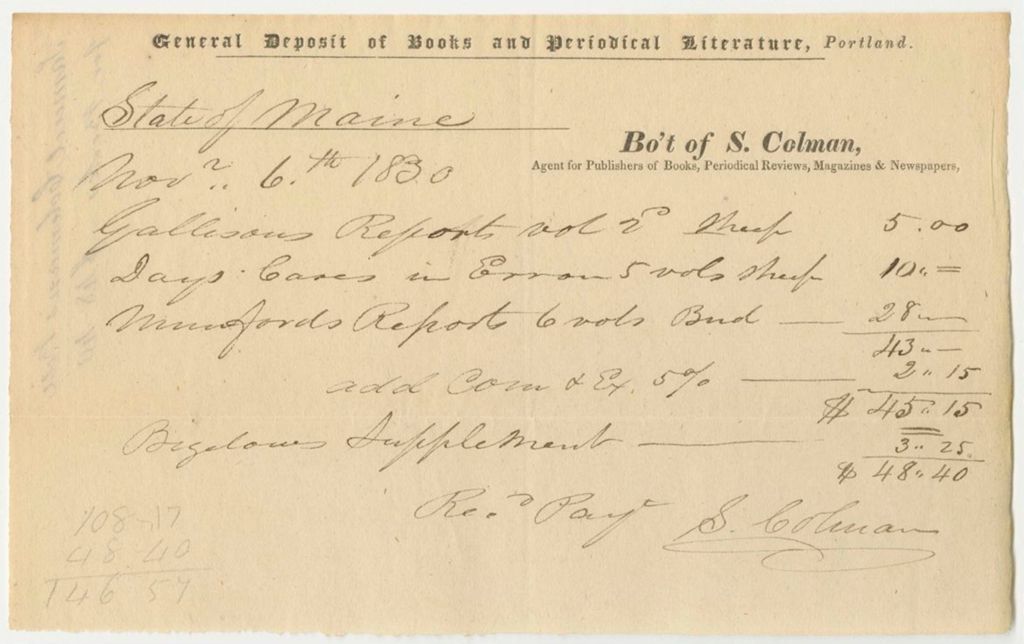 General Deposit of Books and Periodical Literature, Portland.
State of Maine
Bo't of S. Colman,
Agent for Publishers of Books, Periodical Reviews, Magazines & Newspapers,
Novr. 6.th 1830
Gallisons Reports vol 2d Sheep 5.00
Days Cases in Error 5 vols Sheep 10"=
Munfords Reports 6 vols Bnd — 28"—
43"—
add Com & Ex. 5% — 2"15
$ 45"15
Bigelows Supplement — 3"25
$ 48"40
Recd Payt S. Colman
48 40
146 57